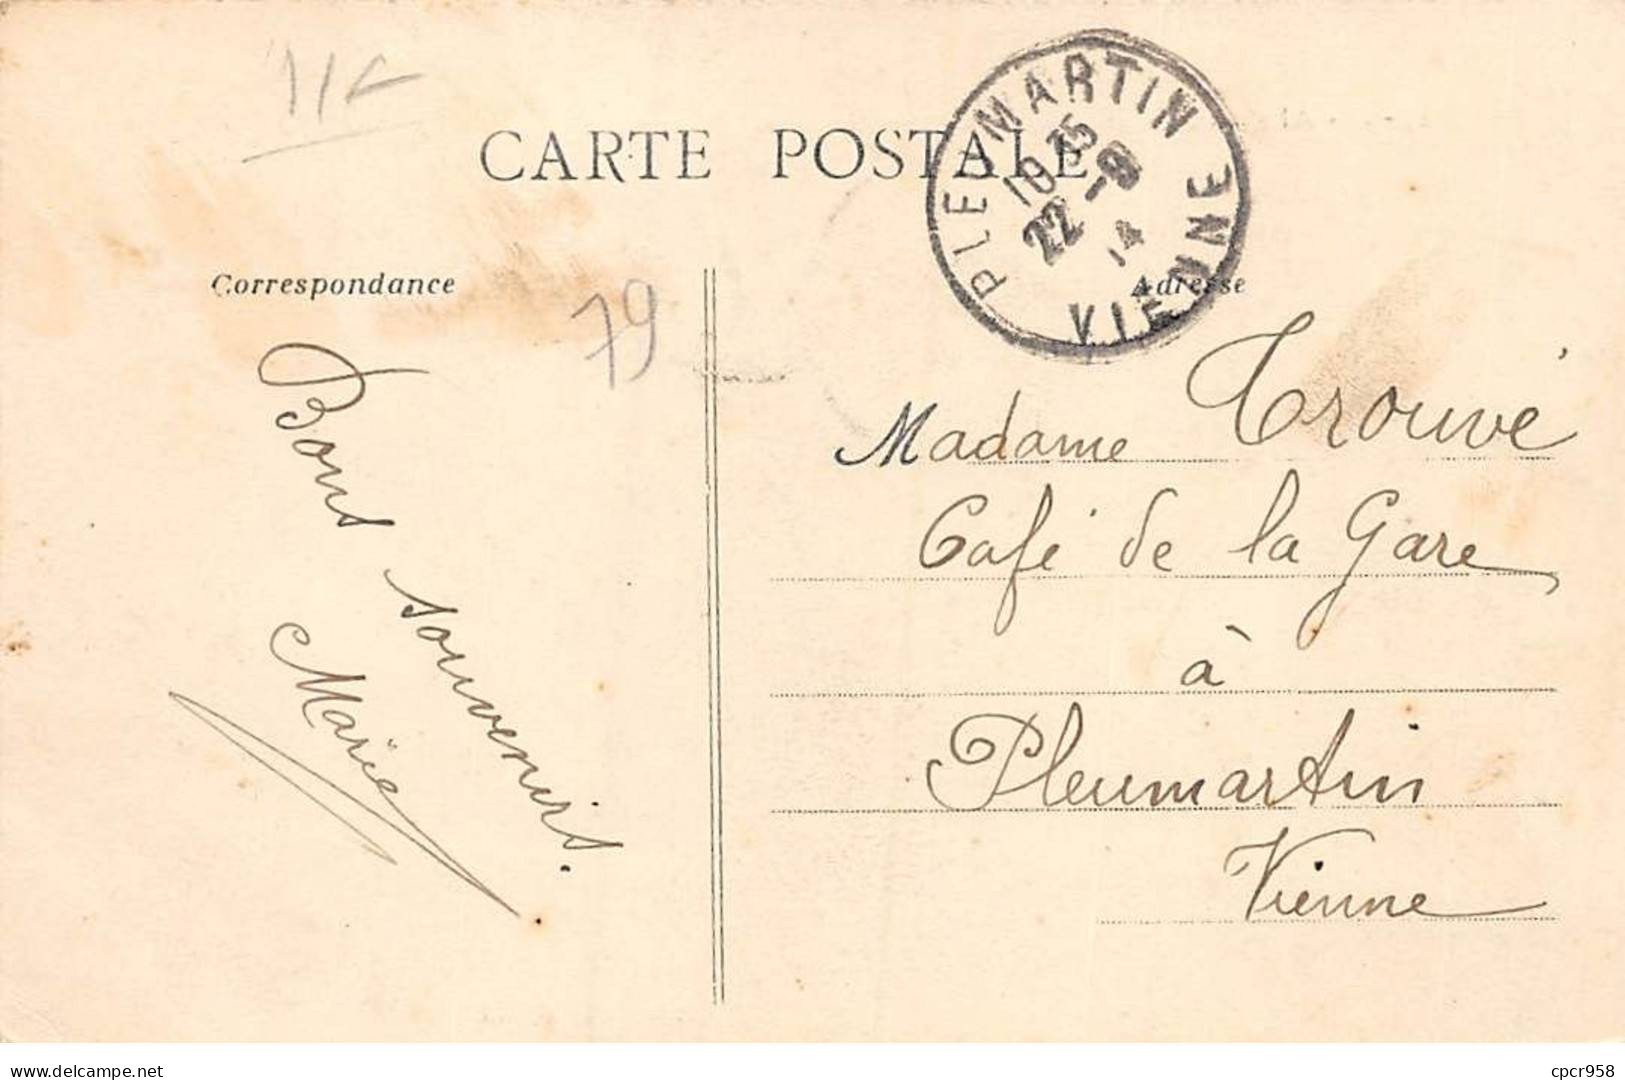 11<
CARTE POSTALE
PLEUMARTIN VIENNE
10 35
22 -9
14
Correspondance
Adresse
79
Bons souvenirs.
Marie
Madame Trouvé
Café de la Gare
à
Pleumartin
Vienne
delcampe.net
cpcr958